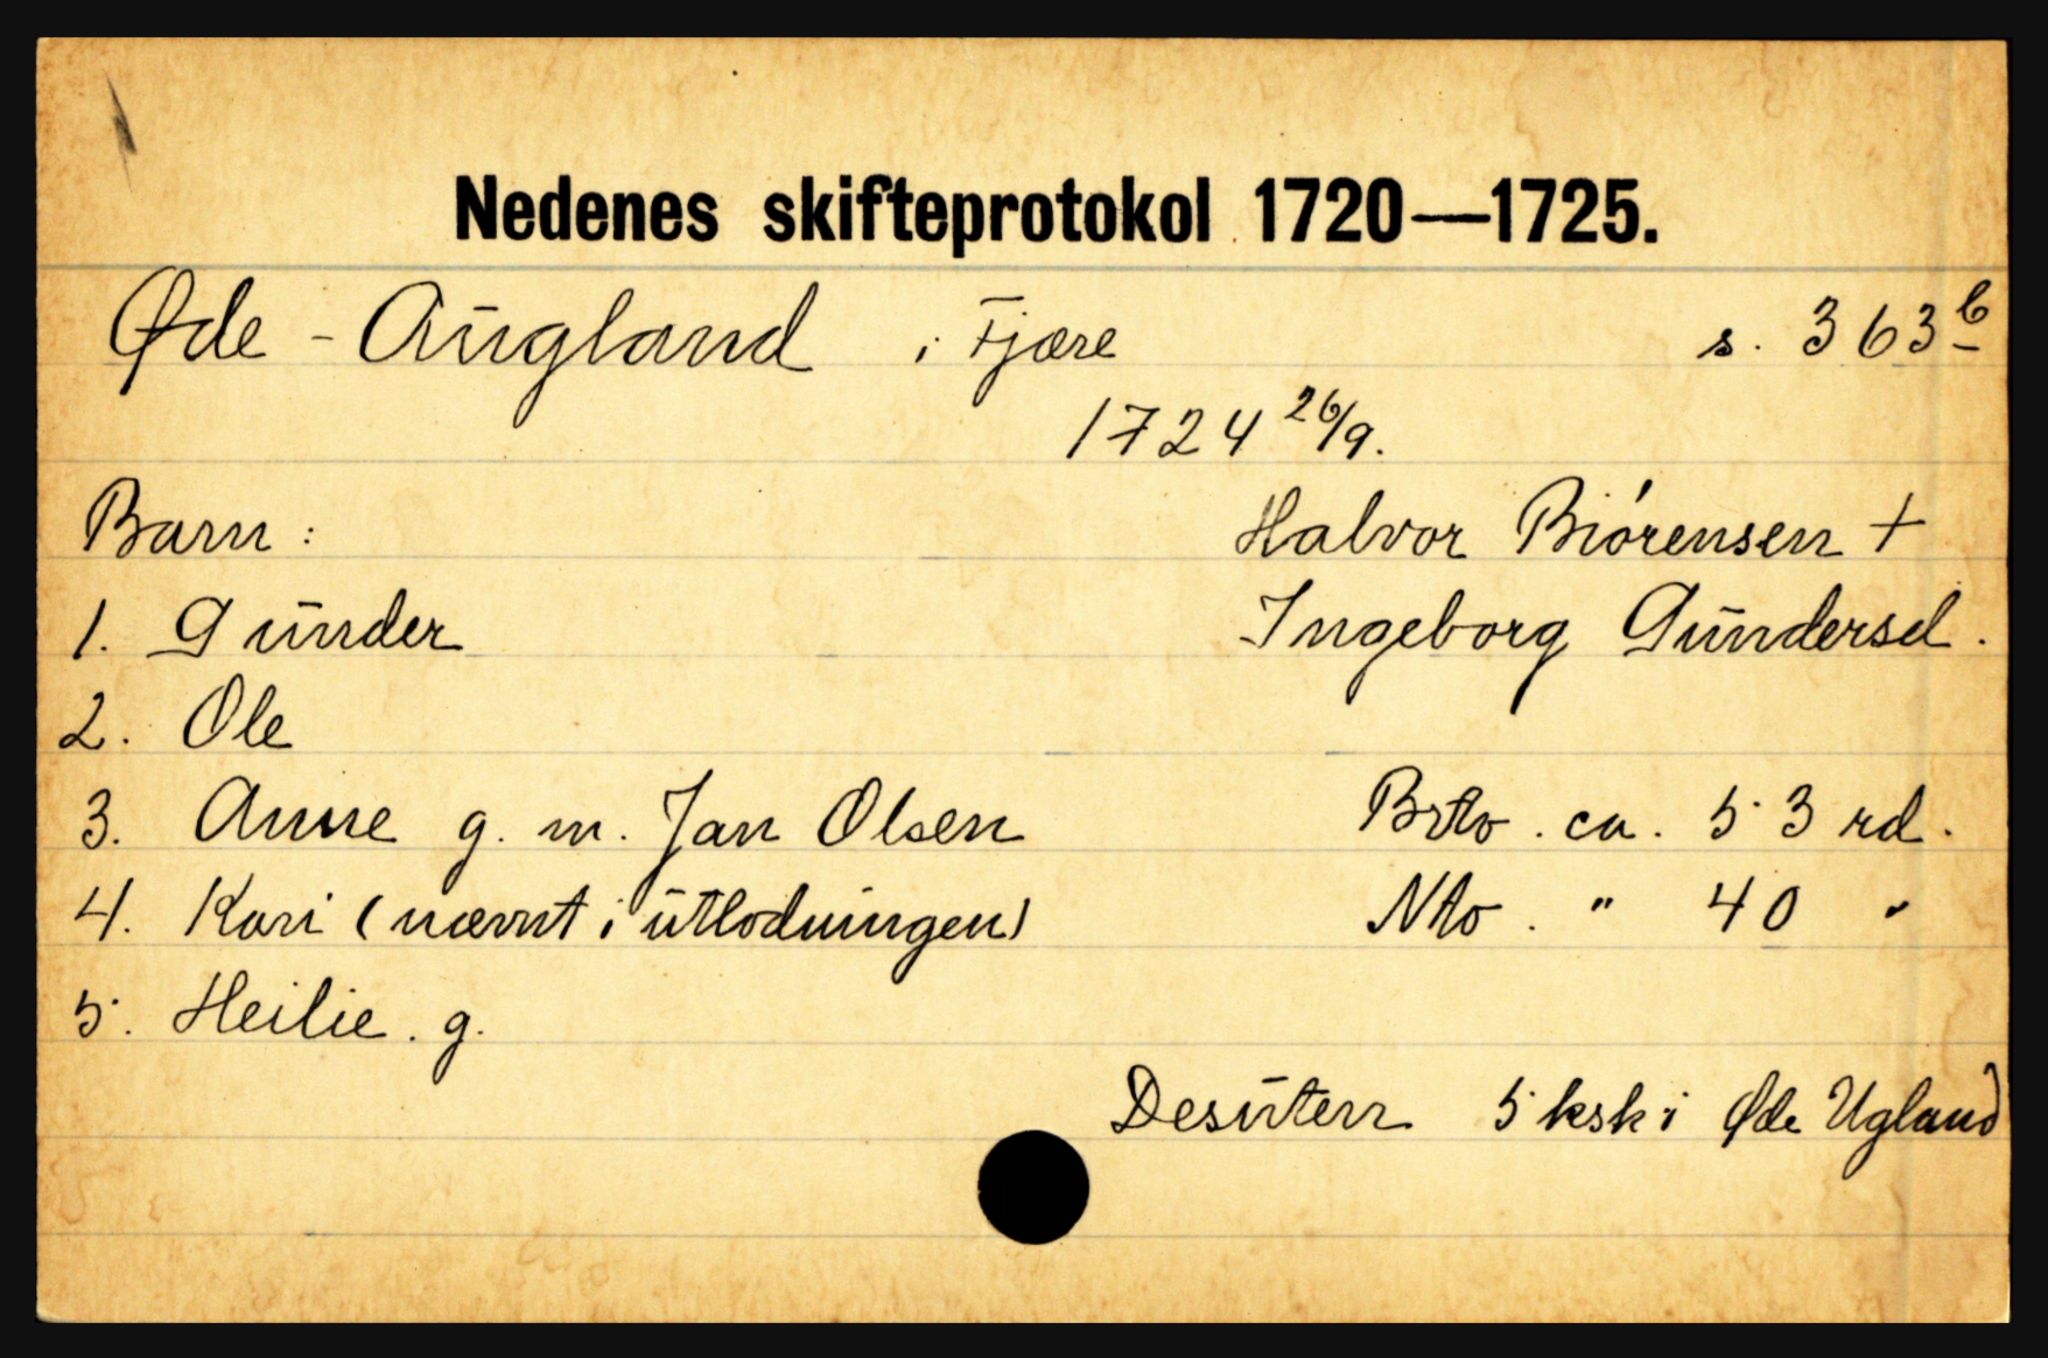 Nedenes skifteprotokol 1720—1725.
Øde - Augland i Fjære s. 363b
1724 26/9.
Barn: Halvor Biórensen +
1. Gunder Ingeborg Gundersd.
2. Ole
3. Anne g. m. Jan Olsen Brto. ca. 53 rd.
4. Kari (nævnt i utlodningen) Nto. " 40 "
5. Heilie. g.
Desuten 5 ksk i Øde Ugland